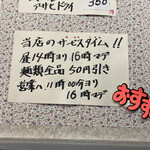 アサヒドライ 350
当店のサービスタイム!!
昼14時ヨリ16時マデ
麺類全品50円引き
営業ハ11時00分ヨリ
16時マデ
おすす